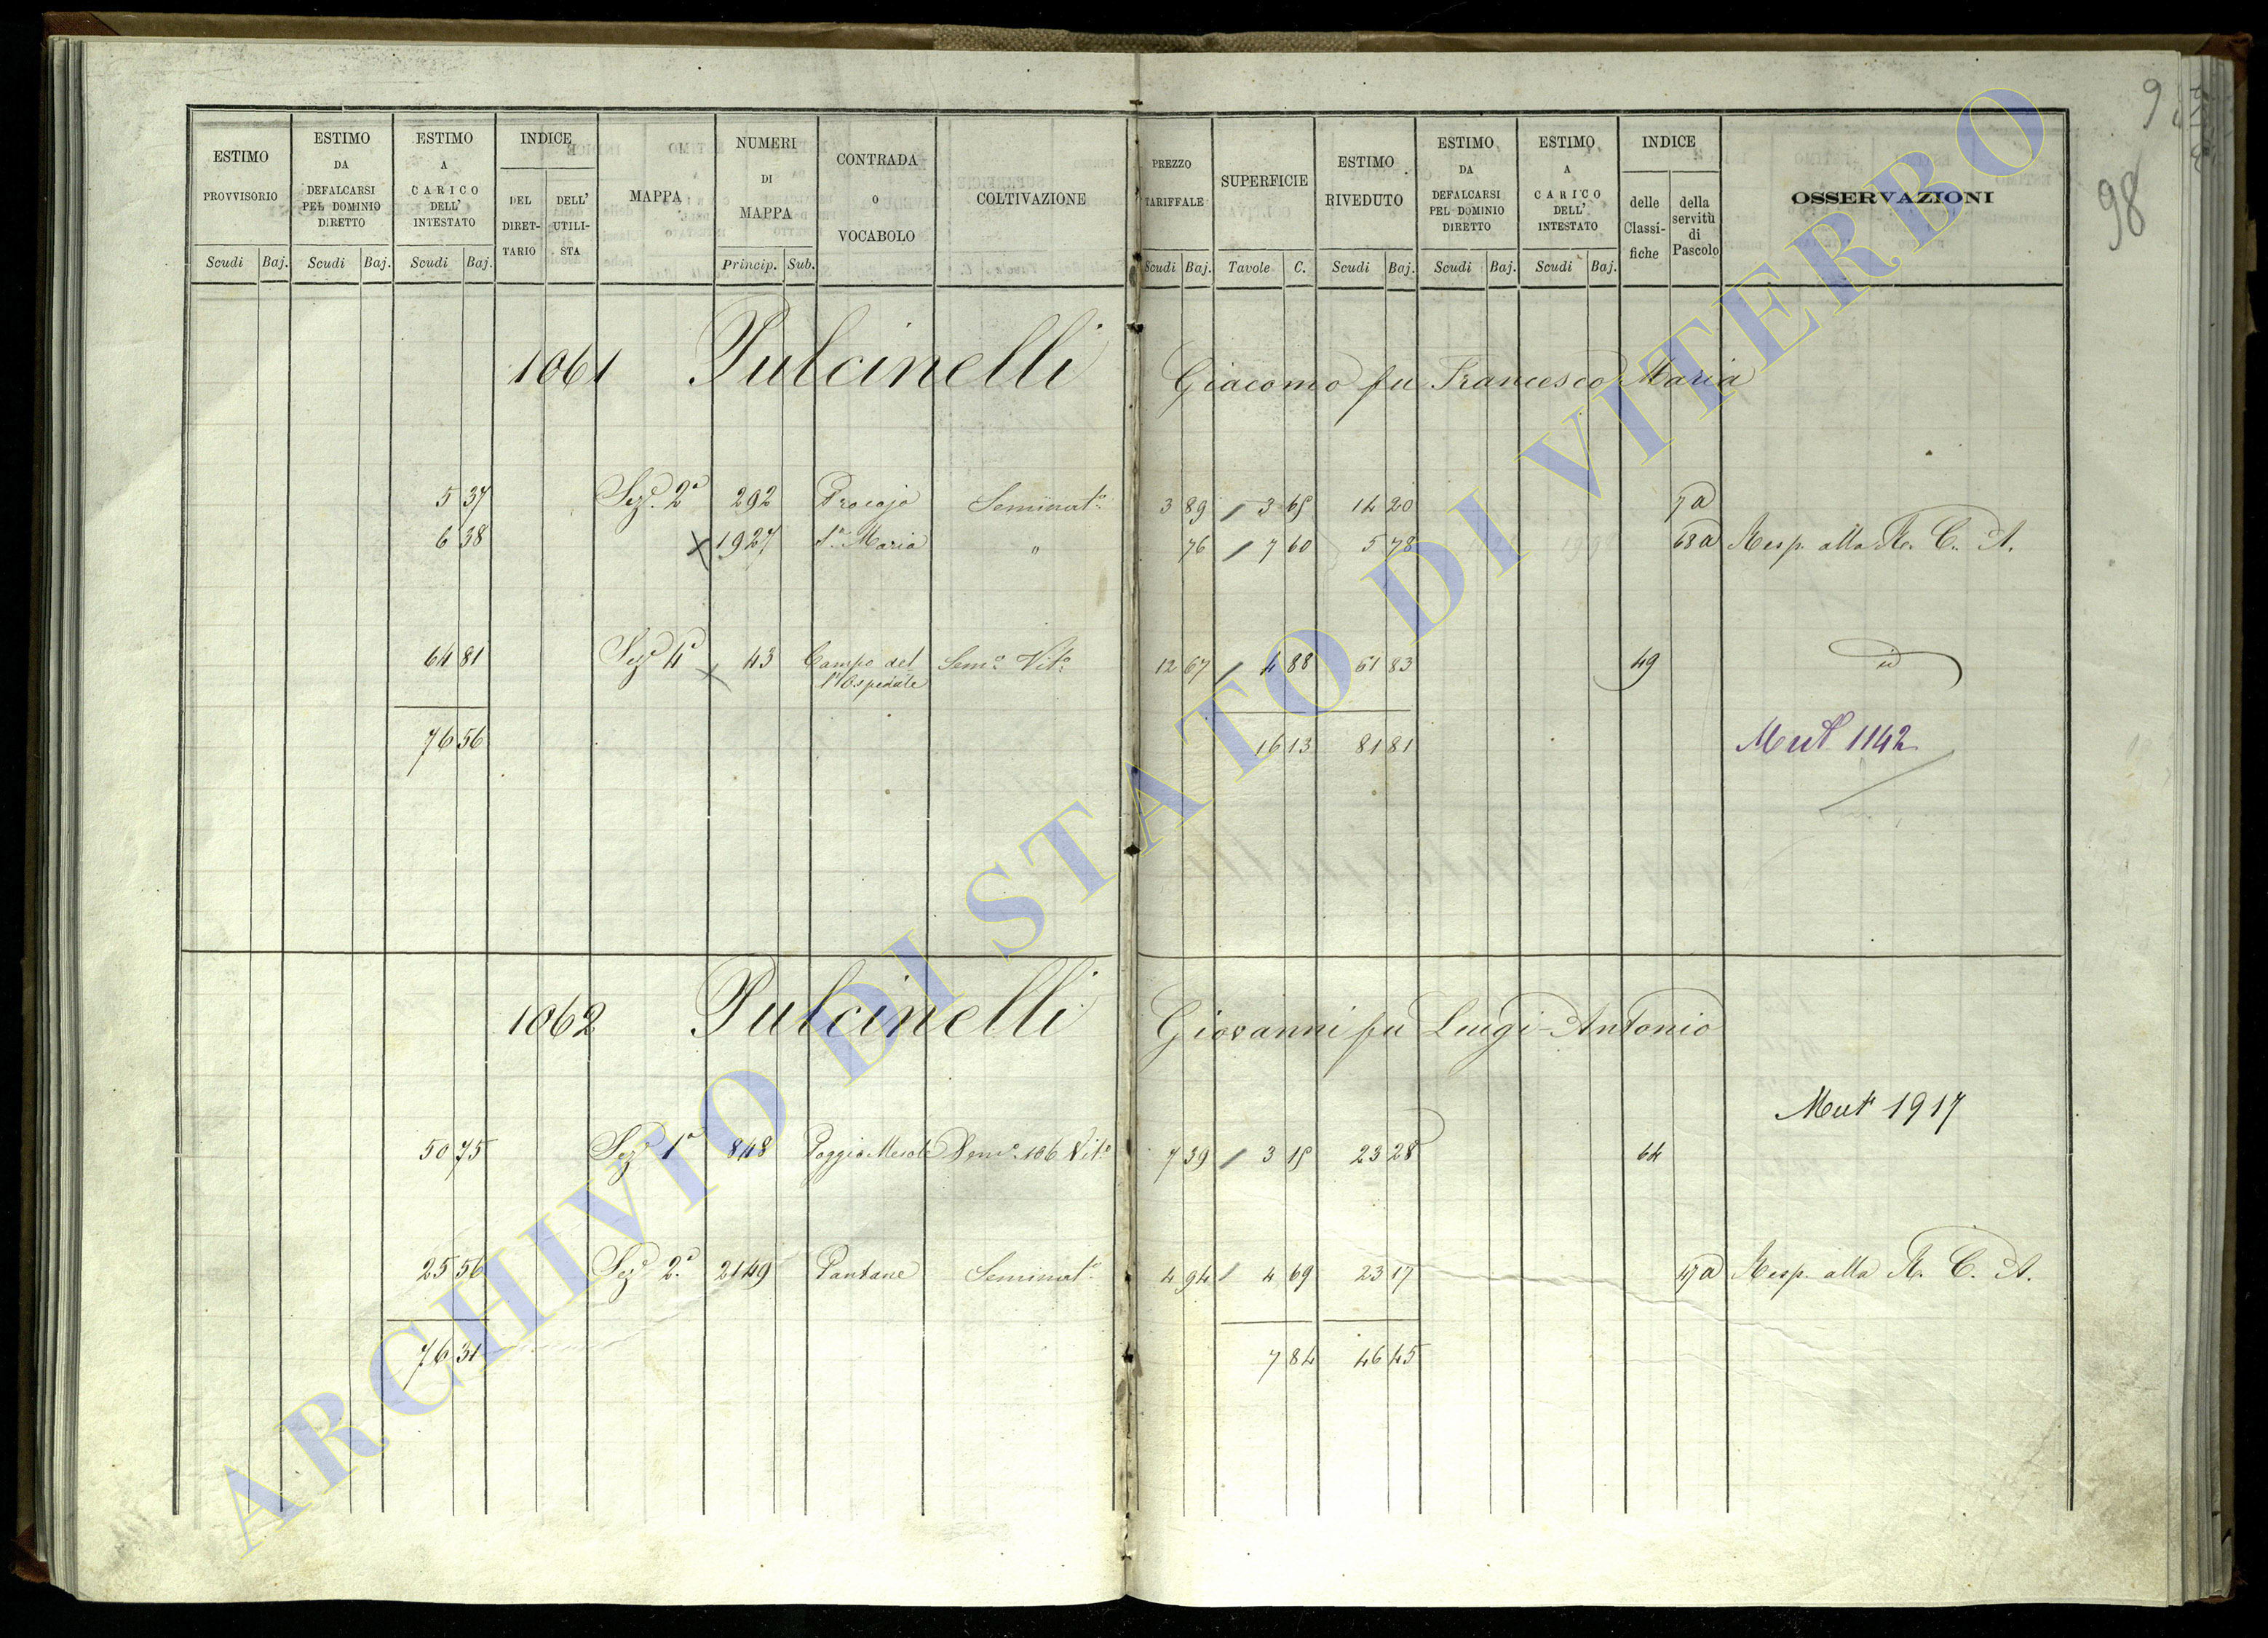 9
98
ESTIMO PROVVISORIO
ESTIMO DA DEFALCARSI PEL DOMINIO DIRETTO
ESTIMO A CARICO DELL' INTESTATO
INDICE
DEL DIRETTARIO
DELL' UTILISTA
MAPPA
NUMERI DI MAPPA
CONTRADA O VOCABOLO
COLTIVAZIONE
PREZZO TARIFFALE
SUPERFICIE
ESTIMO RIVEDUTO
ESTIMO DA DEFALCARSI PEL DOMINIO DIRETTO
ESTIMO A CARICO DELL' INTESTATO
INDICE
delle Classifiche
della servitù di Pascolo
OSSERVAZIONI
Scudi Baj. Scudi Baj. Scudi Baj. Princip. Sub. Scudi Baj. Tavole C. Scudi Baj. Scudi Baj. Scudi Baj.
1061 Pulcinelli Giacomo fu Francesco Maria
5 37 Sez.e 2a 292 Procojo Seminato 3 89 / 3 65 14 20 7a
6 38 x 1927 S.a Maria " 76 / 7 60 5 78 68a Resp. alla R. C. A.
64 81 Sez.e 4a x 43 Campo dell'Ospedale Sem.o Vit.o 12 67 / 4 88 61 83 49 id
76 56 16 13 81 81 Mut.a 1142
1062 Pulcinelli Giovanni fu Luigi Antonio
Mut.a 1917
50 75 Sez.e 1a 848 Poggio Sem.o Vit.o 7 39 / 3 15 23 28 64
25 56 Sez.e 2a 2149 Pantane Seminato 4 94 / 4 69 23 17 47a Resp. alla R. C. A.
76 31 7 84 46 45
ARCHIVIO DI STATO DI VITERBO